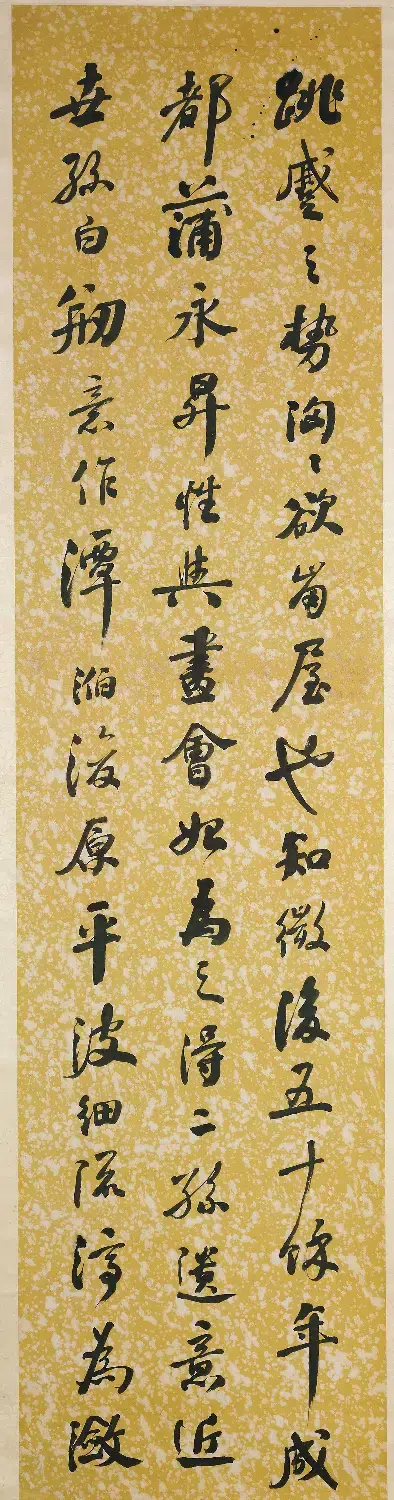 跳蹙之勢洶〻欲崩屋也知微後五十餘年成
都蒲永昇性與畫會始為之得二孫遺意近
世孫白剏意作潭滔浚原平波細流渟為瀲